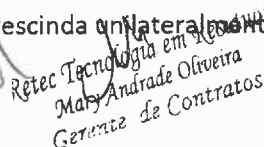 escinda unilateralment
Retec Tecnologia em
Mary Andrade Oliveira
Gerente de Contratos